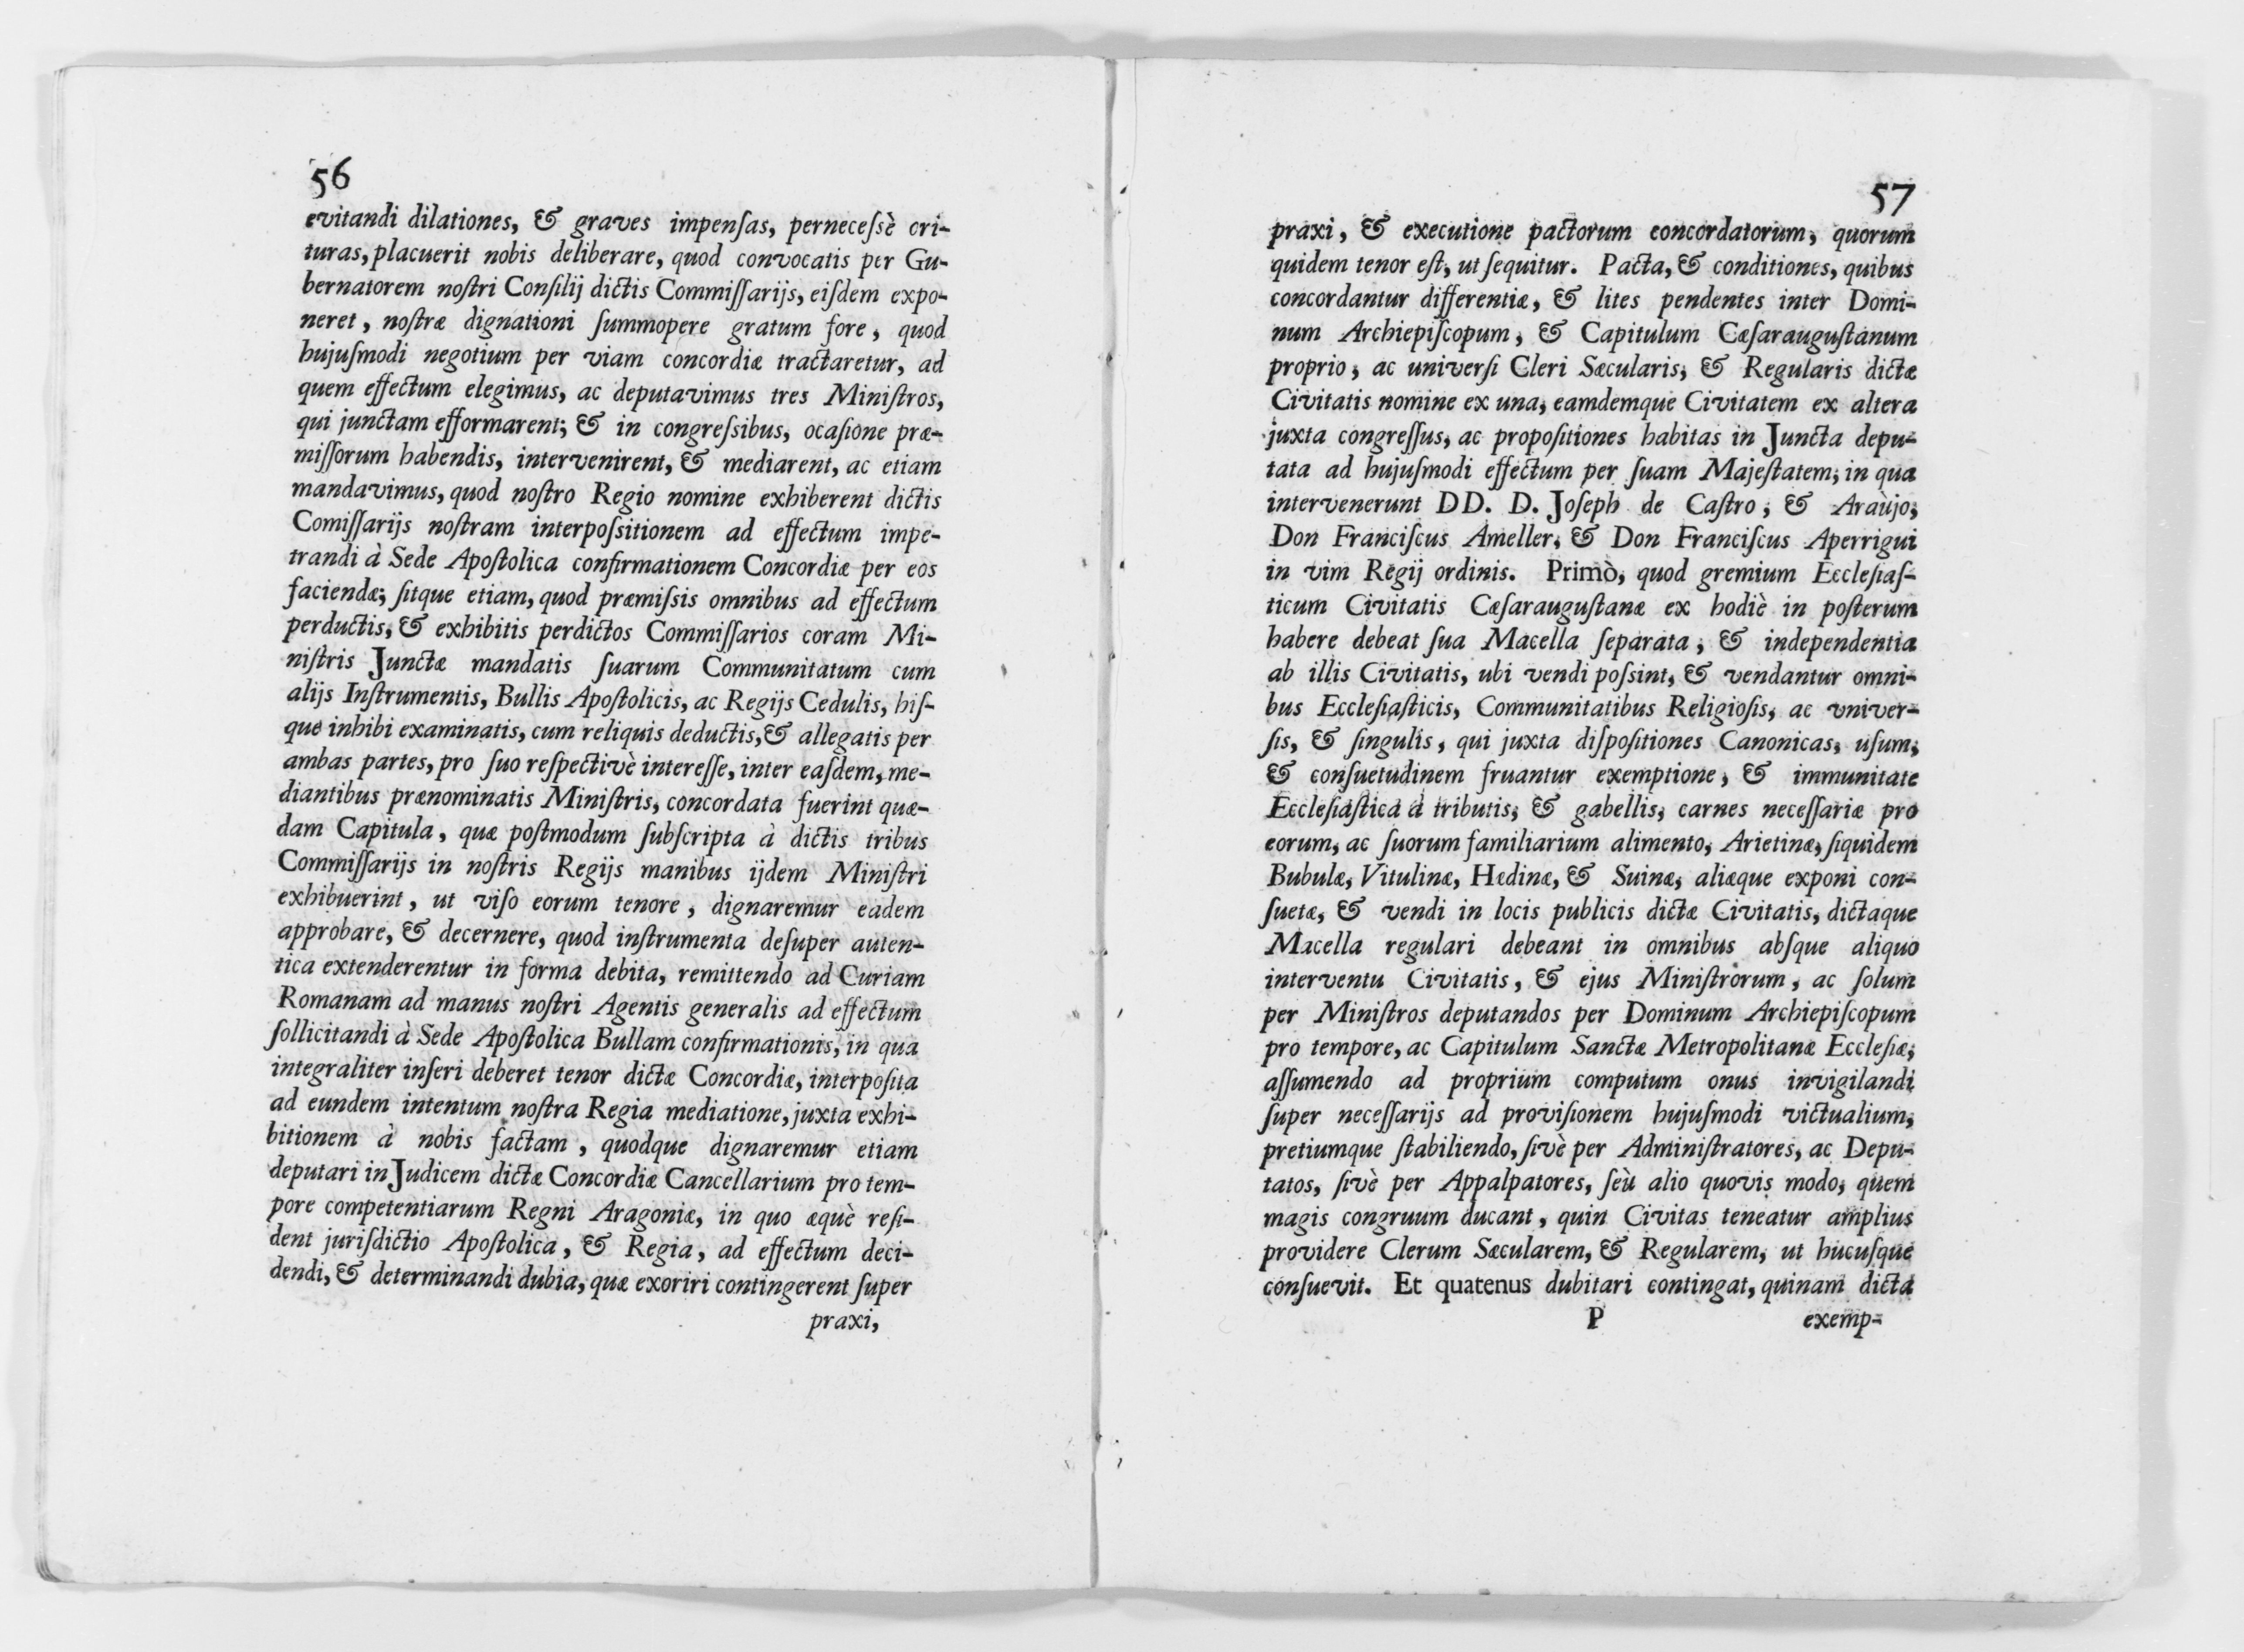 56
evitandi dilationes, & graves impenſas, perneceſsè ori-
turas, placuerit nobis deliberare, quod convocatis per Gu-
bernatorem noſtri Conſilij dictis Commiſſarijs, eiſdem expo-
neret, noſtræ dignationi ſummopere gratum fore, quod
hujuſmodi negotium per viam concordiæ tractaretur, ad
quem effectum elegimus, ac deputavimus tres Miniſtros,
qui junctam efformarent; & in congreſsibus, ocaſione præ-
miſſorum habendis, intervenirent, & mediarent, ac etiam
mandavimus, quod noſtro Regio nomine exhiberent dictis
Comiſſarijs noſtram interpoſsitionem ad effectum impe-
trandi à Sede Apoſtolica confirmationem Concordiæ per eos
faciendæ; ſitque etiam, quod præmiſsis omnibus ad effectum
perductis, & exhibitis perdictos Commiſſarios coram Mi-
niſtris Junctæ mandatis ſuarum Communitatum cum
alijs Inſtrumentis, Bullis Apoſtolicis, ac Regijs Cedulis, hiſ-
que inhibi examinatis, cum reliquis deductis, & allegatis per
ambas partes, pro ſuo reſpectivè intereſſe, inter eaſdem, me-
diantibus prænominatis Miniſtris, concordata fuerint quæ-
dam Capitula, quæ poſtmodum ſubſcripta à dictis tribus
Commiſſarijs in noſtris Regijs manibus ijdem Miniſtri
exhibuerint, ut viſo eorum tenore, dignaremur eadem
approbare, & decernere, quod inſtrumenta deſuper auten-
tica extenderentur in forma debita, remittendo ad Curiam
Romanam ad manus noſtri Agentis generalis ad effectum
ſollicitandi à Sede Apoſtolica Bullam confirmationis, in qua
integraliter inſeri deberet tenor dictæ Concordiæ, interpoſita
ad eundem intentum noſtra Regia mediatione, juxta exhi-
bitionem à nobis factam, quodque dignaremur etiam
deputari in Judicem dictæ Concordiæ Cancellarium pro tem-
pore competentiarum Regni Aragoniæ, in quo æquè reſi-
dent juriſdictio Apoſtolica, & Regia, ad effectum deci-
dendi, & determinandi dubia, quæ exoriri contingerent ſuper
praxi,
57
praxi, & executione pactorum concordatorum, quorum
quidem tenor eſt, ut ſequitur. Pacta, & conditiones, quibus
concordantur differentiæ, & lites pendentes inter Domi-
num Archiepiſcopum, & Capitulum Cæſarauguſtanum
proprio, ac univerſi Cleri Sæcularis, & Regularis dictæ
Civitatis nomine ex una, eamdemque Civitatem ex altera
juxta congreſſus, ac propoſitiones habitas in Juncta depu-
tata ad hujuſmodi effectum per ſuam Majeſtatem, in qua
intervenerunt DD. D. Joſeph de Caſtro, & Araùjo,
Don Franciſcus Ameller, & Don Franciſcus Aperrigui
in vim Regij ordinis. Primò, quod gremium Eccleſiaſ-
ticum Civitatis Cæſarauguſtanæ ex hodiè in poſterum
habere debeat ſua Macella ſeparata, & independentia
ab illis Civitatis, ubi vendi poſsint, & vendantur omni-
bus Eccleſiaſticis, Communitatibus Religioſis, ac vniver-
ſis, & ſingulis, qui juxta diſpoſitiones Canonicas, uſum,
& conſuetudinem fruantur exemptione, & immunitate
Eccleſiaſtica à tributis, & gabellis, carnes neceſſariæ pro
eorum, ac ſuorum familiarium alimento, Arietinæ, ſiquidem
Bubulæ, Vitulinæ, Hædinæ, & Suinæ, aliæque exponi con-
ſuetæ, & vendi in locis publicis dictæ Civitatis, dictaque
Macella regulari debeant in omnibus abſque aliquo
interventu Civitatis, & ejus Miniſtrorum, ac ſolum
per Miniſtros deputandos per Dominum Archiepiſcopum
pro tempore, ac Capitulum Sanctæ Metropolitanæ Eccleſiæ,
aſſumendo ad proprium computum onus invigilandi
ſuper neceſſarijs ad proviſionem hujuſmodi victualium,
pretiumque ſtabiliendo, ſivè per Adminiſtratores, ac Depu-
tatos, ſivè per Appalpatores, ſeù alio quovis modo, quem
magis congruum ducant, quin Civitas teneatur amplius
providere Clerum Sæcularem, & Regularem, ut hucuſque
conſuevit. Et quatenus dubitari contingat, quinam dicta
P exemp-